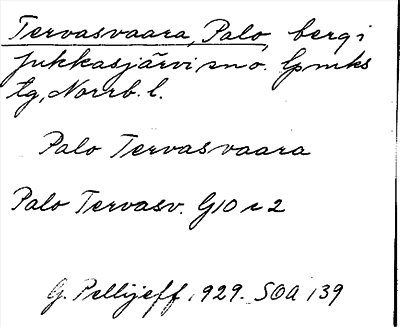 Tervasvaara, Palo, berg i
Jukkasjärvi sn o. lpmks
tg, Norrb. l.
Palo Tervasvaara
Palo Tervasv. G10 c 2
G. Pellijeff 1929. SOA 139